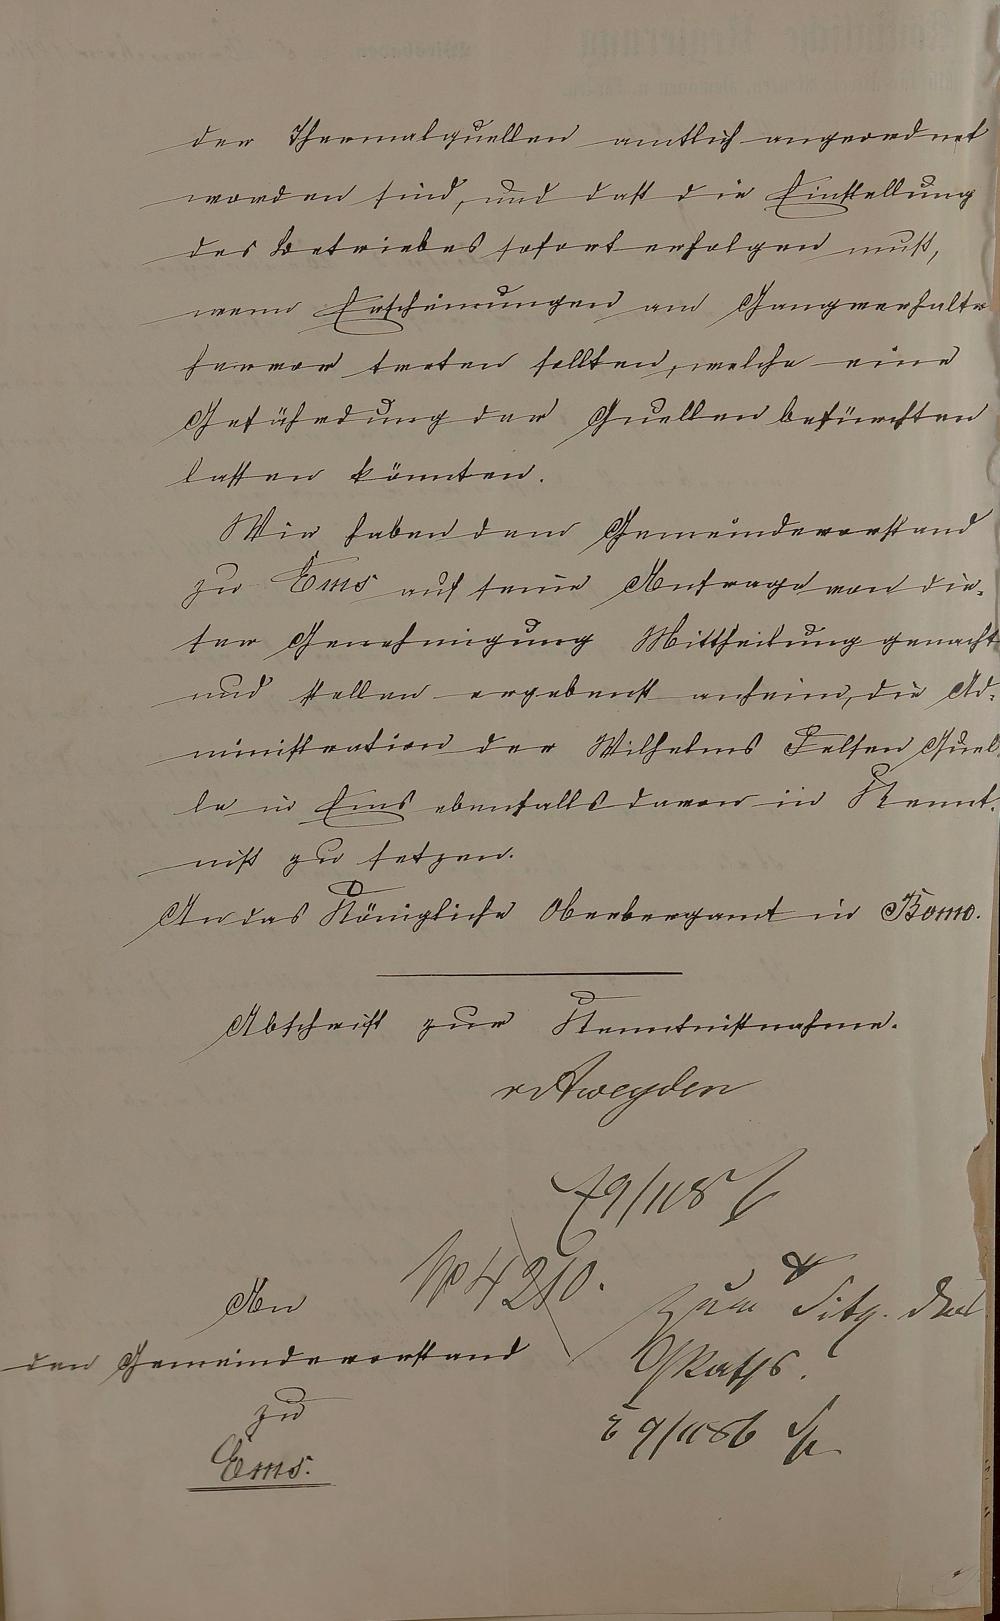 der Thermalquellen amtlich angeordnet
worden sind, und daß die Einstellung
des Betriebes sofort erfolgen muß,
wenn Erscheinungen am Gangverhalte
hervor treten sollten, welche eine
Gefährdung der Quellen befürchten
lassen könnten.
Wir haben dem Gemeindevorstand
zu Ems auf seine Anfrage von die-
ser Genehmigung Mittheilung gemacht
und stellen ergebenst anheim, die Ad-
ministration der Wilhelms Felsen Quel
le in Ems ebenfalls davon in Kennt-
niß zu setzen.
An das Königliche Oberbergamt in Bonn.
Abschrift zur Kenntnißnahme.
v Aweyden
9/11 86
No 4210.
An
den Gemeindevorstand
zu
Ems.
zur Sitzg. des
GRaths.
E 9/11 86